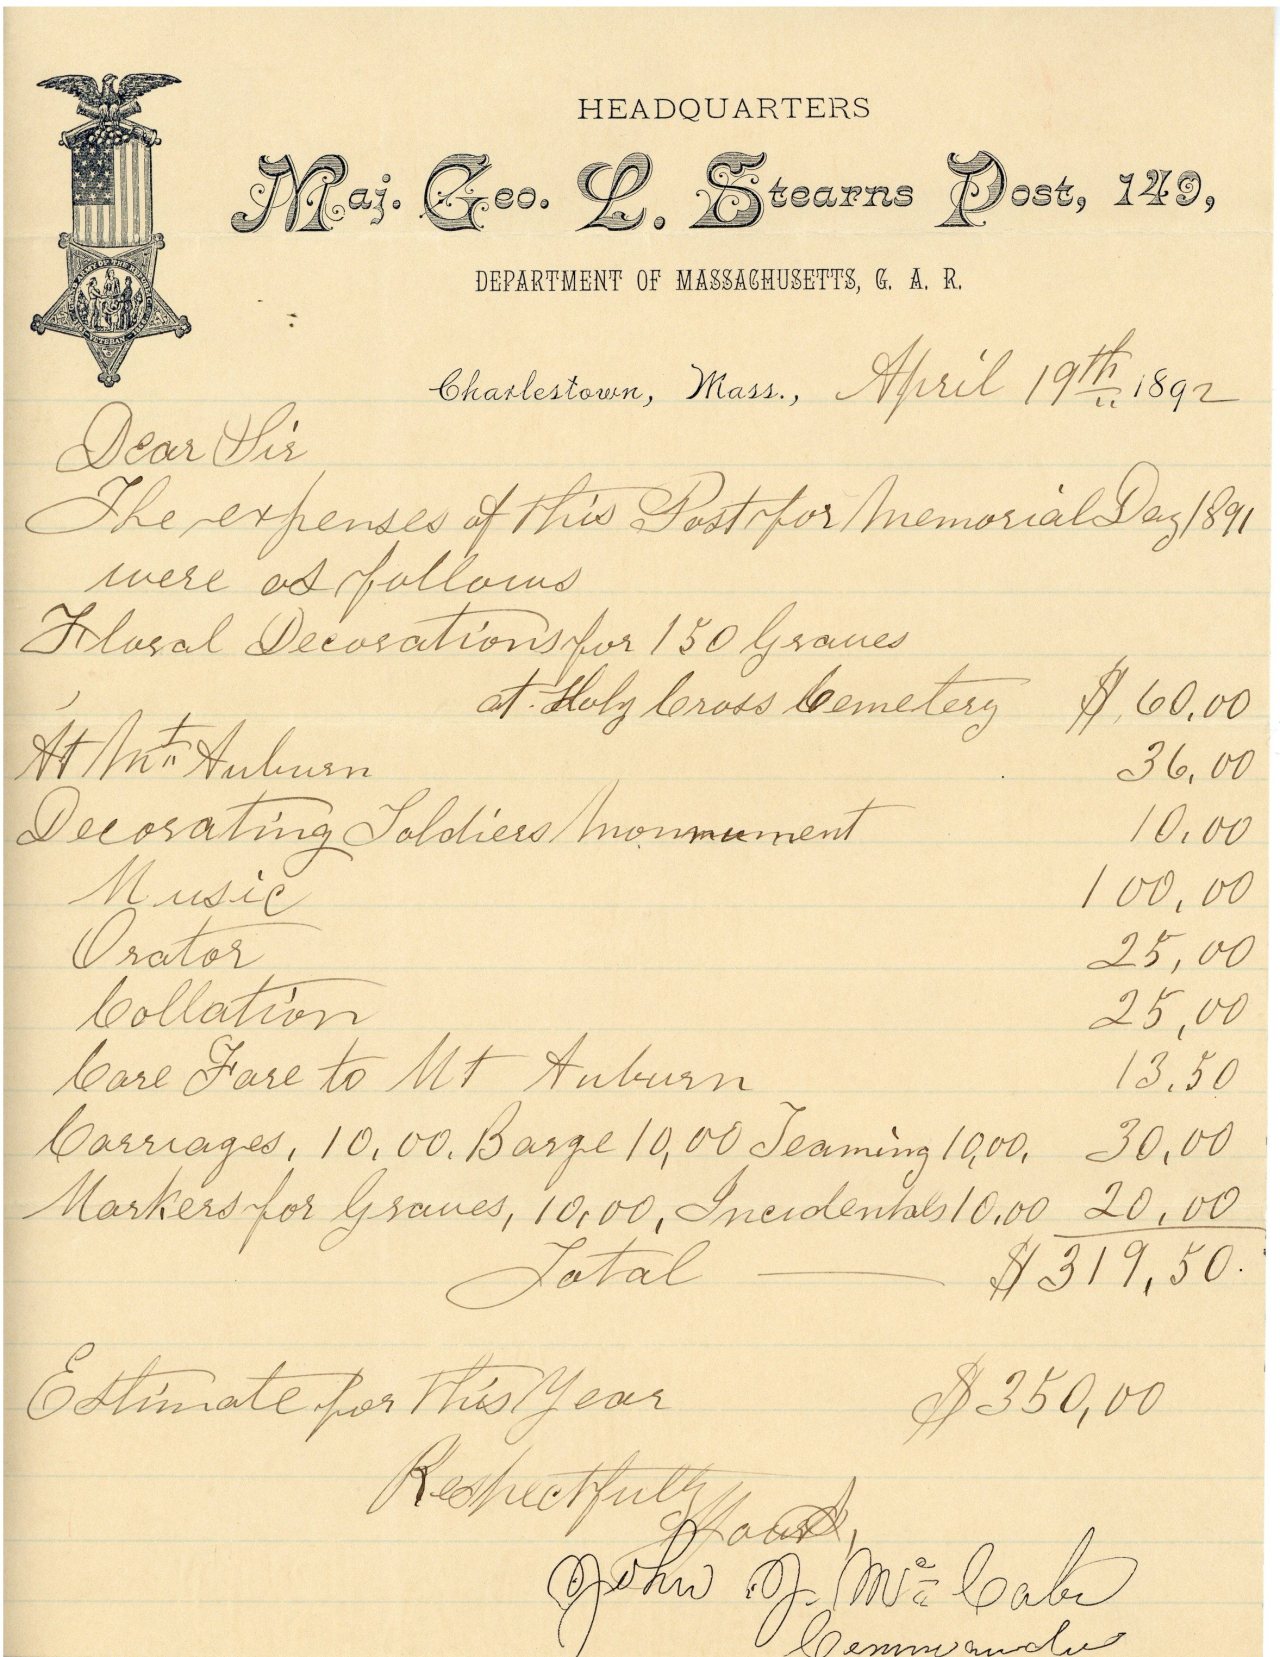 HEADQUARTERS
Maj. Geo. L. Stearns Post, 149,
DEPARTMENT OF MASSACHUSETTS, G. A. R.
Charlestown, Mass., April 19th 1892
Dear Sir
The expenses of this Post for Memorial Day 1891
were as follows
Floral Decorations for 150 Graves
at Holy Cross Cemetery $ 60.00
At Mt Auburn 36,00
Decorating Soldiers Monument 10.00
Music 100,00
Orator 25,00
Collation 25,00
Care Fare to Mt Auburn 13.50
Carriages, 10,00. Barge 10,00 Teaming 10,00, 30,00
Markers for Graves, 10,00, Incidentals 10.00 20,00
Total — $ 319,50.
Estimate for this Year $ 350,00
Respectfully
Yours,
John J. Mc Cabe
Commander
VETERAN